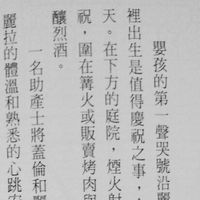 嬰孩的第一聲哭號沿麗
裡出生是值得慶祝之事，
天。在下方的庭院，煙火射
祝，圍在篝火或販賣烤肉與
釀烈酒。
一名助產士將蓋倫和麗
麗拉的體溫和熟悉的心跳安